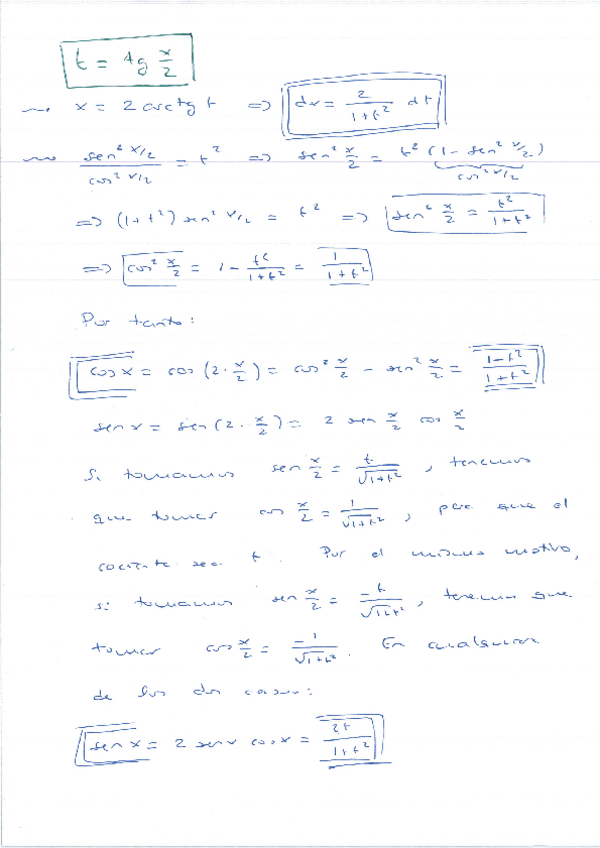 t = tg x/2
⇝ x = 2 arctg t ⇒ dx = 2/(1+t²) dt
⇝ sen² x/2 / cos² x/2 = t² ⇒ sen² x/2 = t² (1 - sen² x/2)
cos² x/2
⇒ (1+t²) sen² x/2 = t² ⇒ sen² x/2 = t²/(1+t²)
⇒ cos² x/2 = 1 - t²/(1+t²) = 1/(1+t²)
Por tanto:
cos x = cos (2 · x/2) = cos² x/2 - sen² x/2 = (1-t²)/(1+t²)
sen x = sen (2 · x/2) = 2 sen x/2 cos x/2
Si tomamos sen x/2 = t/√(1+t²), tenemos
que tomar cos x/2 = 1/√(1+t²), para que el
cociente sea t. Por el mismo motivo,
si tomamos sen x/2 = -t/√(1+t²), tenemos que
tomar cos x/2 = -1/√(1+t²). En cualquiera
de los dos casos:
sen x = 2 sen x cos x = 2t/(1+t²)